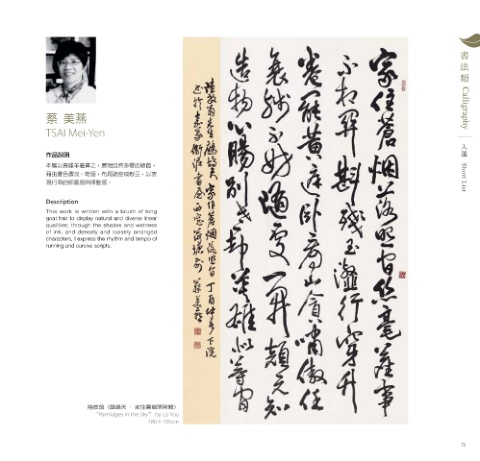 書法類 Calligraphy
入選 Short List
蔡 美燕
TSAI Mei-Yen
作品說明
本幅以長鋒羊毫書之，展現自然多變的線質，
藉由墨色濃淡、乾溼，
Description
This work is written with a brush of long
goat hair to display natural and diverse linear
qualities; through the shades and wetness
of ink, and densely and loosely arranged
characters, I express the rhythm and tempo of
running and cursive scripts.
家住蒼烟落照間絲毫塵事
不相關斟殘玉瀣行穿竹
卷罷黃庭臥看山貪嘯傲任
衰殘不妨隨處一開顏元知
造物心腸別老卻英雄似等閒
陸放翁先生鷓鴣天 家住蒼烟落照間 丁酉仲春下浣
蔡美燕
陸放翁〈鷓鴣天 · 家住蒼煙落照間〉
"Partridges in the Sky" by Lu You